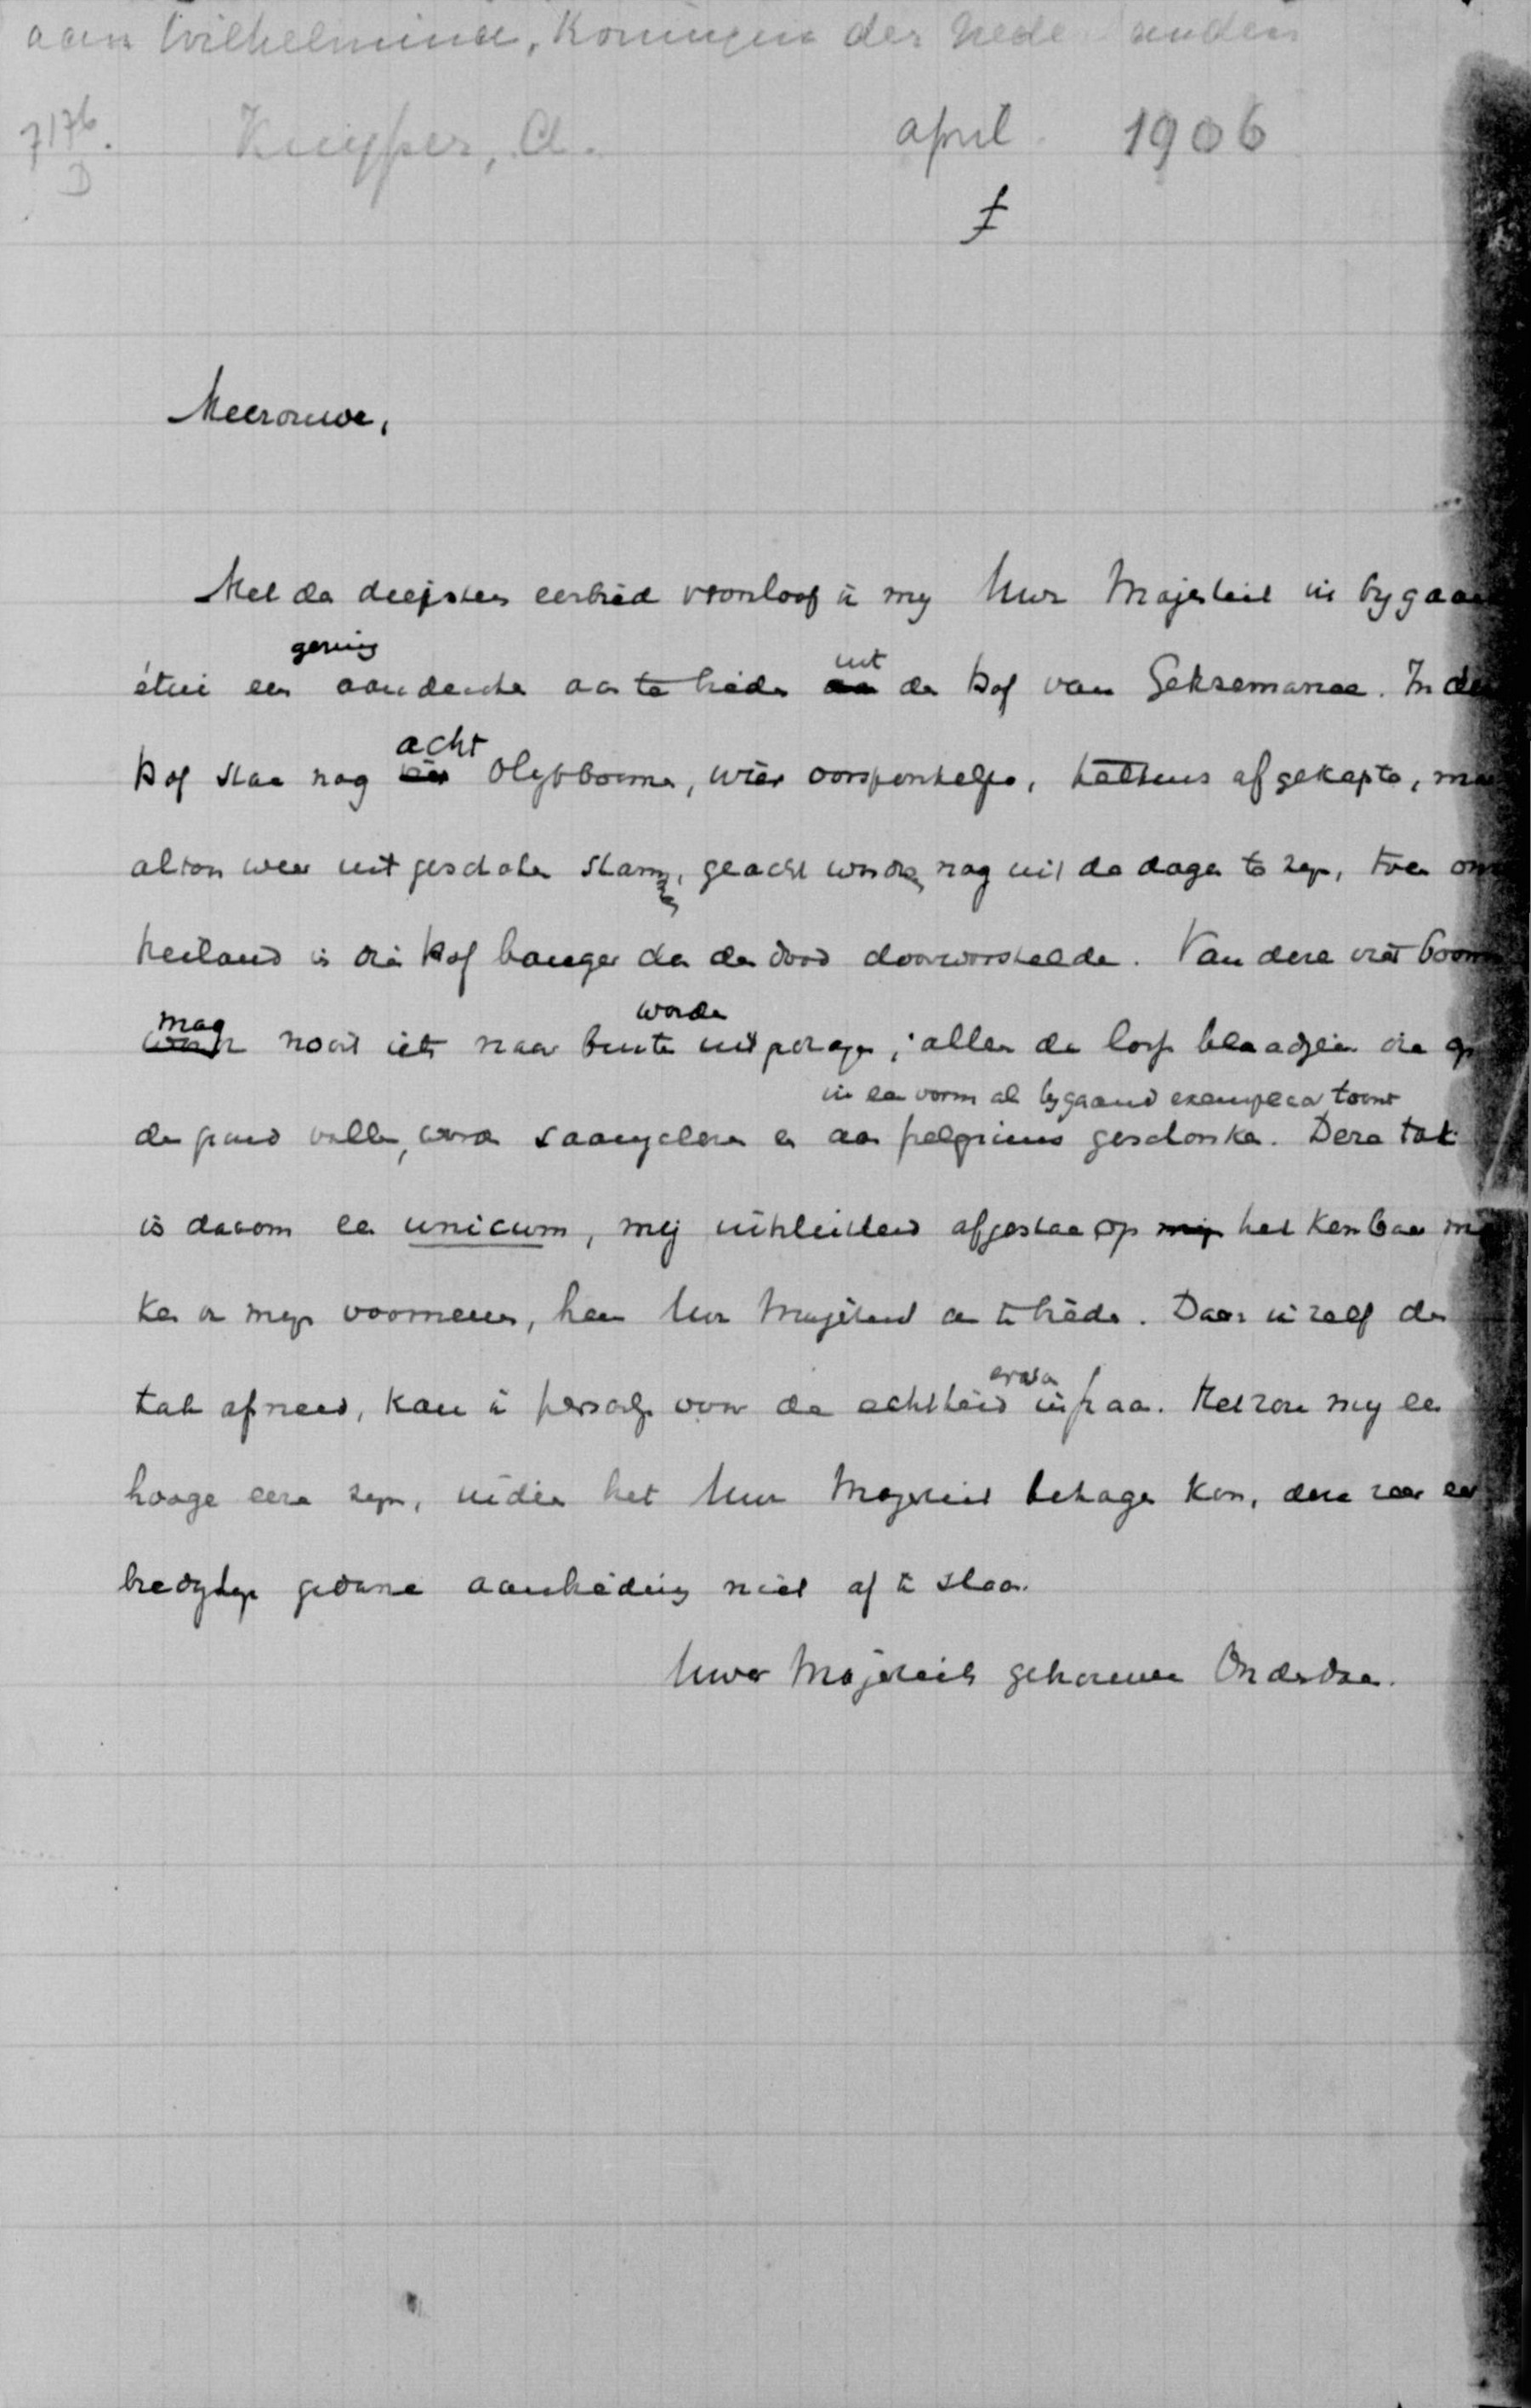 aan Wilhelmina, Koningin der Nederlanden
7176.
D
Kuyper, A.
april 1906
Mevrouwe,
Met de diepsten eerbied veroorloof ik mij Uwe Majesteit in bygaa
gering
uit
étui een aandenken aan te bieden aan den Hof van Gethsemanee. In den
acht
Hof staan nog vier Olyfboomen, wier oorspronkelyke, telkens afgekapte, maar
altoos weer uitgeschoten stam, geacht worden nog uit de dagen te zyn, toen onze
Heiland in dien Hof banger dan den dood doorworstelde. Van deze vier boomen
mag
worden
nooit iets naar buiten uitgedragen; alleen de losse blaadjes die op
in een vorm als bygaand exemplaar toont
den grond vallen, worden saamgelezen en aan pelgrims geschonken. Deze tak
is daarom een unicum, mij uitsluitend afgestaan op mijn het kenbaar ma
ken van myn voornemen, hem Uwe Majesteit aan te bieden. Daar ik zelf den
ervan
tak afsneed, kan ik persoonlyk voor de echtheid instaan. Het zou my een
hooge eere zyn, indien het Uwe Majesteit behagen kon, deze zeer eer
biediglyk gedane aanbieding niet af te slaan.
Uwer Majesteits gehoorzame Onderdaan.